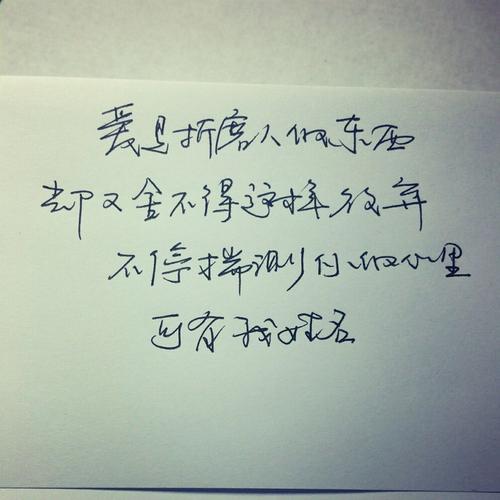 爱是折磨人的东西
却又舍不得这样放弃
不停揣测你的心里
可有我姓名